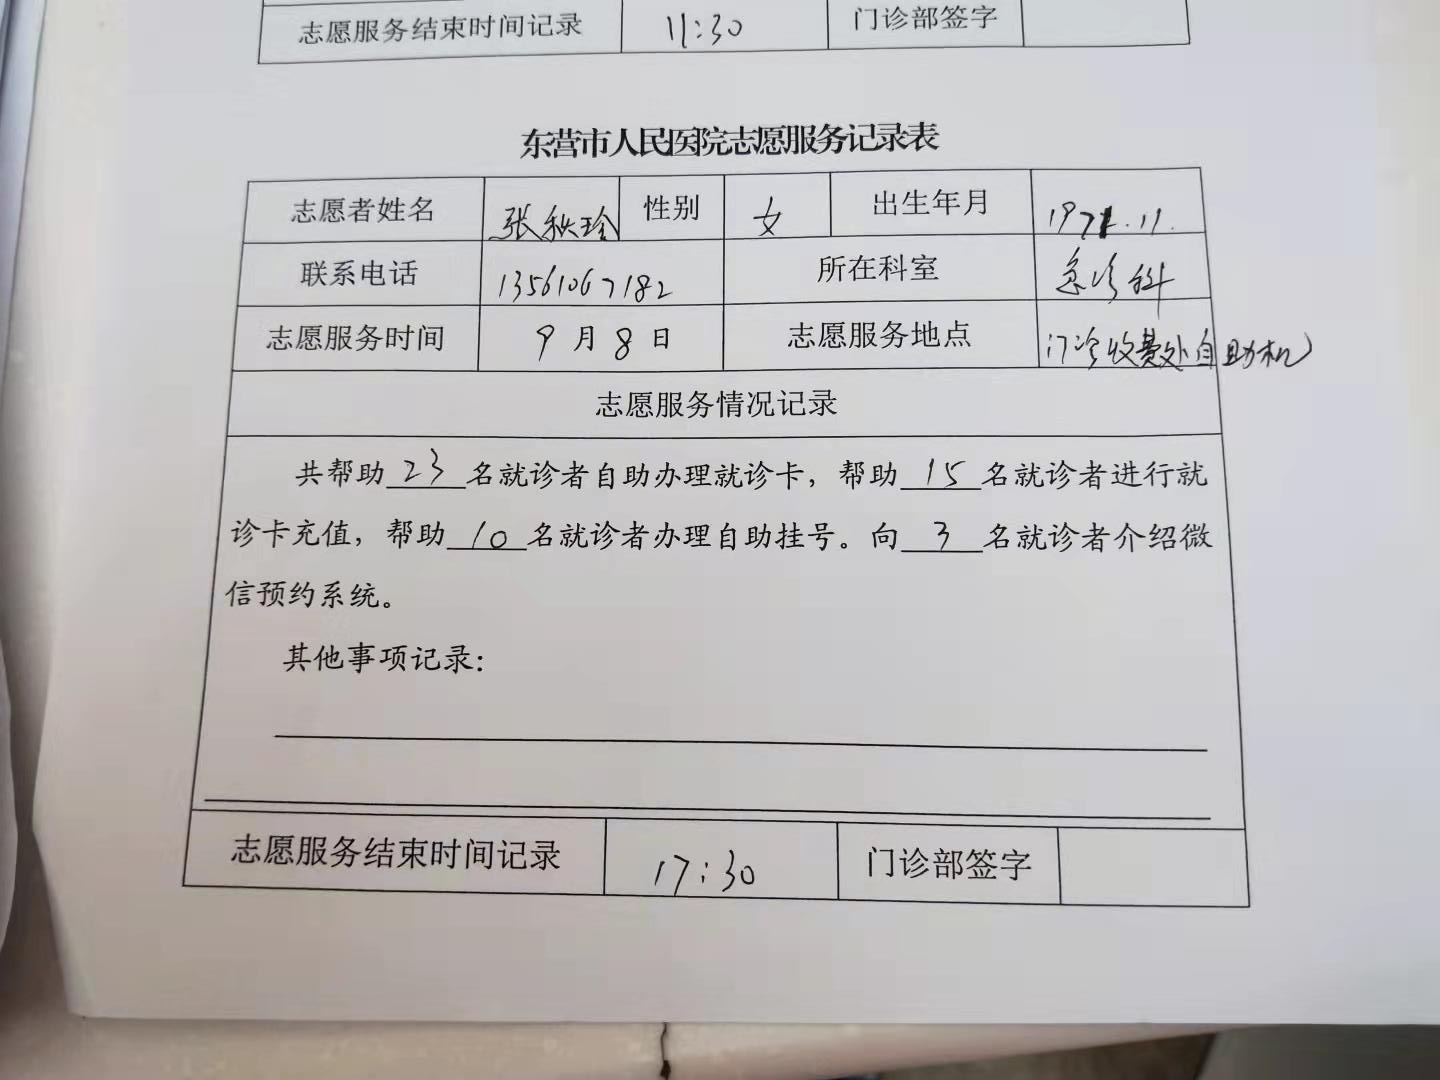 志愿服务结束时间记录 11:30 门诊部签字
东营市人民医院志愿服务记录表
志愿者姓名 张秋玲 性别 女 出生年月 1971.11.
联系电话 13561067182 所在科室 急诊科
志愿服务时间 9月8日 志愿服务地点 门诊收费处自助机
志愿服务情况记录
共帮助23名就诊者自助办理就诊卡，帮助15名就诊者进行就
诊卡充值，帮助10名就诊者办理自助挂号。向3名就诊者介绍微
信预约系统。
其他事项记录：
志愿服务结束时间记录 17:30 门诊部签字